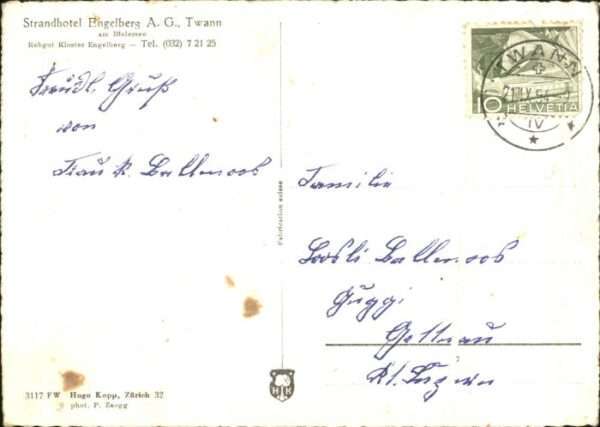 Strandhotel Engelberg A. G., Twann
am Bielersee
Rebgut Kloster Engelberg — Tel. (032) 7 21 25
Freudl. Gruß
von
Frau R. Ballmoos
Fabrication suisse
3117 FW Hugo Kopp, Zürich 32
phot. P. Zaugg
HK
TWANN
21.IX.54
IV
10 HELVETIA
Familie
Boosli Ballmoos
Guggi
Gettnau
Kt. Luzern